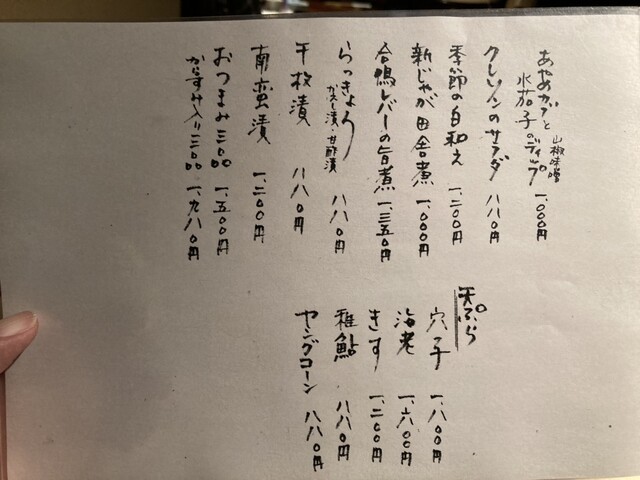 あやめかぶと
水茄子のディップ 山椒味噌 一、〇〇〇円
クレソンのサラダ 八八〇円
季節の白和え 一、二〇〇円
新じゃが田舎煮 一、〇〇〇円
合鴨レバーの旨煮 一、三五〇円
らっきょう かえし漬・甘酢漬 八八〇円
千枚漬 八八〇円
南蛮漬 一、二〇〇円
おつまみ三品 一、五〇〇円
からすみ入り三品 一、九八〇円
天ぷら
穴子 一、八〇〇円
海老 一、六〇〇円
きす 一、二〇〇円
稚鮎 八八〇円
ヤングコーン 八八〇円